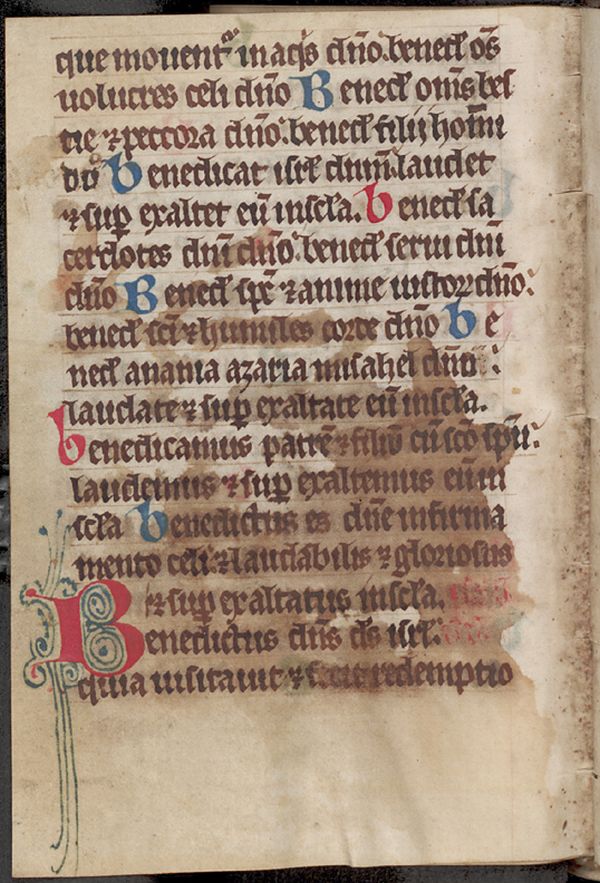 que mouent᷑ in aq̄s dn̄o.bened̄ om̄s
uolucres celi dn̄o Bened̄ om̄s bes
tie ⁊ peccora dn̄o:bened̄ filij hom̄i
dn̄o benedicat isrl̄ dnm̄:laudet
⁊ suꝑ exaltet eū in sc̄la. bened̄ sa
cerdotes dn̄i dn̄o:bened̄ serui dn̄i
dn̄o Bened̄ sp̄c ⁊ anime iustoꝝ dn̄o:
bened̄ sc̄i ⁊ humiles corde dn̄o be
ned̄ anania azaria misahel dn̄o :
laudate ⁊ suꝑ exaltate eū in sc̄la.
benedicamus patrē ⁊ filiū cū sc̄o sp̄u:
laudemus ⁊ suꝑ exaltemus eū in
sc̄la benedictus es dn̄e in firma
mento celi:⁊ laudabilis ⁊ gloriosus
⁊ suꝑ exaltatus in sc̄la.
Benedictus dn̄s ds̄ isrl̄:
quia uisitauit ⁊ fecit redemptio